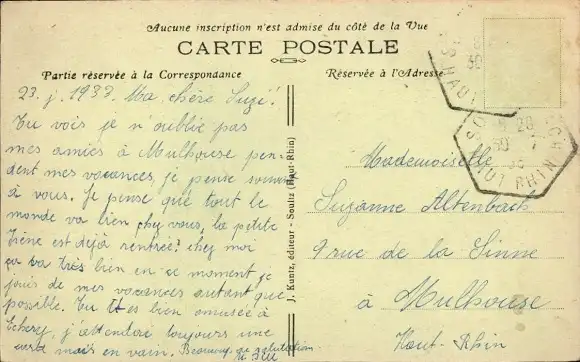 Aucune inscription n'est admise du côté de la Vue
CARTE POSTALE
Partie réservée à la Correspondance
Réservée à l'Adresse
23. j. 1933. Ma chère Suzi!
Tu vois je n'oublie pas
mes amies à Mulhouse pen-
dent mes vacances, je pense souvent
à vous. Je pense que tout le
monde va bien chez vous, la petite
Irène est déjà rentrée? chez moi
ça va très bien en ce moment je
jouis de mes vacances autant que
possible. Tu t'es bien amusée à
j'attendre toujours une
mais en vain. Beaucoup de salutation
J. Kuntz, éditeur - Soultz (Haut-Rhin)
Mademoiselle
Suzanne Altenbach
9 rue de la Sinne
à Mulhouse
Haut-Rhin
HAUT RHIN